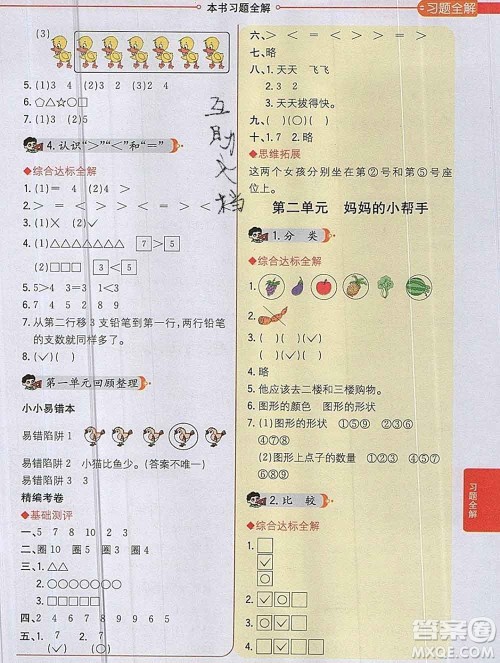 本书习题全解
习题全解
(3)
5. (1)3 4 (2)3 2
6. ○△☆○□
7. (1)3 (2)5
4. 认识“>”“<”和“=”
◆综合达标全解
1. (1)= 4 (2)4 >
2. < > = >
3. (1)✕ (2)✓
4. (1)△△△△△△△ 7>5
(2)□□□ □<□
5. 5>4 3=3 1<2
6. 7 4 5 2 8 9
7. 从第二行移3支铅笔到第一行,两行铅笔
的支数就同样多。
8. (✓)( )
第一单元回顾整理
小小易错本
易错陷阱1
易错陷阱2 小猫比鱼少。(答案不唯一)
易错陷阱3 < >
精编考卷
◆基础测评
一、5 7 8 10 2 3
二、圈10 圈5 圈2 圈4
三、1. △△
2. ○○○○○○○○○
四、2 4 5 7 8 9
五、1. ( )(✓)
六、> = < > < >
七、略
八、1. 天天 飞飞
2. 3 2
3. 天天拔得快。
九、( )( )(○)
十、1. 7 2. 略
◆思维拓展
这两个女孩分别坐在第②号和第⑤号座
位上。
第二单元 妈妈的小帮手
1. 分 类
◆综合达标全解
1.
2.
3. ( )( )(✓)( )
4. 略
5. 他应该去二楼和三楼购物。
6. 图形的颜色 图形的形状
7. (1)图形的形状 ①⑤⑨ ②③⑥
④⑦⑧
(2)图形上点子的数量 ①③④
②⑦⑨ ⑤⑥⑧
2. 比 较
◆综合达标全解
1. □
✓
□
2. ✓○□
3. □✓○□
4. □○✓□
习题全解
互助文档
答案圈
MXQE.COM